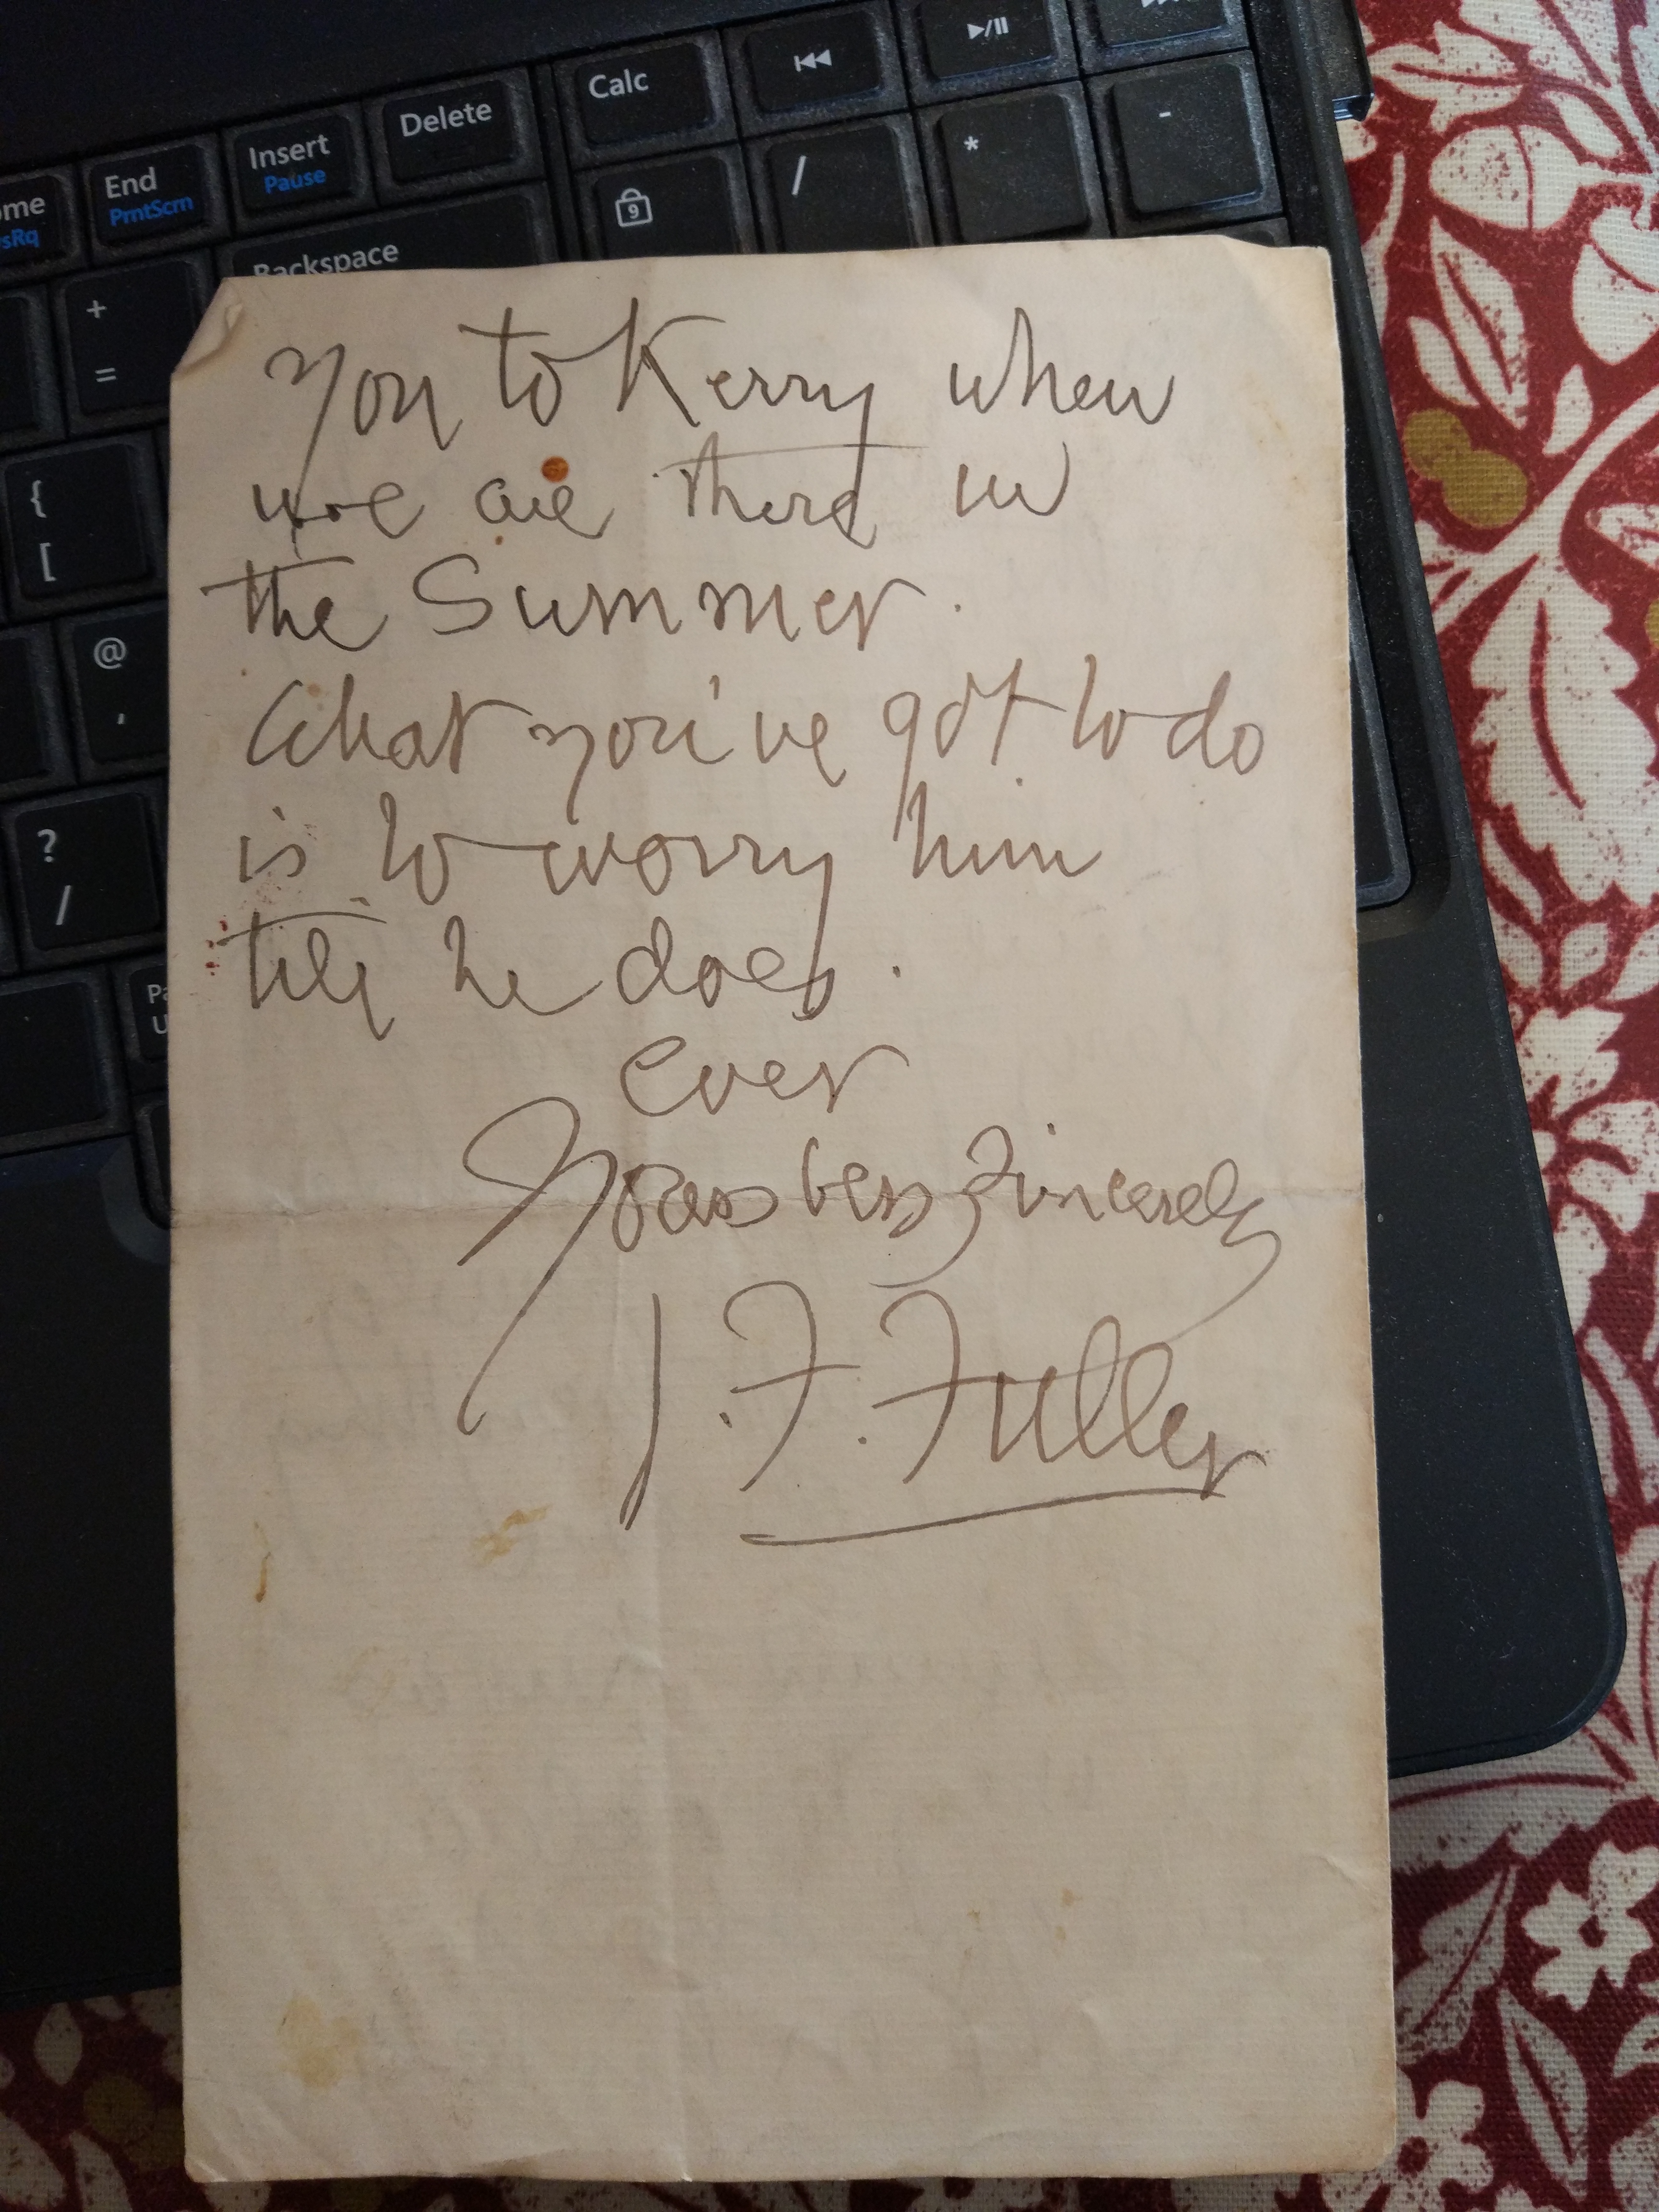 Calc
Delete
Insert
Pause
End
PrntScrn
ome
sRq
Backspace
9
/
*
-
+
=
{
[
@
'
?
/
you to Kerry when
we are there in
the Summer.
What you've got to do
is to worry him
till he does.
ever
Yours very sincerely
J. F. Fuller